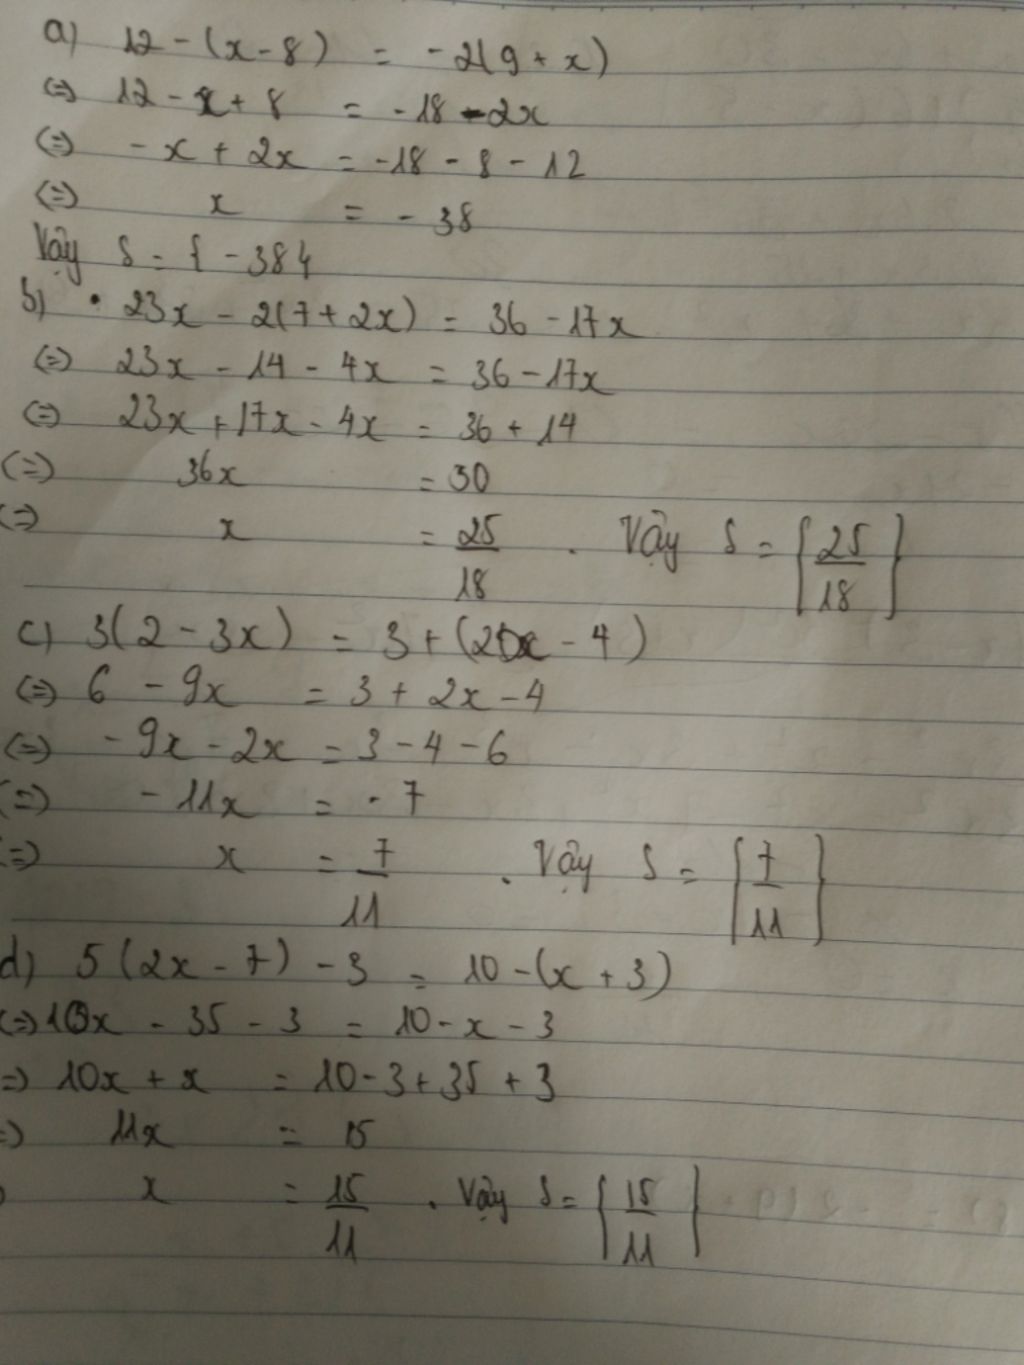 a) 12 - (x - 8) = -2(9 + x)
(=) 12 - x + 8 = -18 - 2x
(=) -x + 2x = -18 - 8 - 12
(=) x = -38
Vậy S = {-38}
b) • 23x - 2(7 + 2x) = 36 - 17x
(=) 23x - 14 - 4x = 36 - 17x
(=) 23x + 17x - 4x = 36 + 14
(=) 36x = 30
(=) x = 25/18 . Vậy S = {25/18}
c) 3(2 - 3x) = 3 + (2x - 4)
(=) 6 - 9x = 3 + 2x - 4
(=) -9x - 2x = 3 - 4 - 6
(=) -11x = -7
(=) x = 7/11 . Vậy S = {7/11}
d) 5(2x - 7) - 3 = 10 - (x + 3)
(=) 10x - 35 - 3 = 10 - x - 3
=) 10x + x = 10 - 3 + 35 + 3
=) 11x = 15
) x = 15/11 . Vậy S = {15/11}